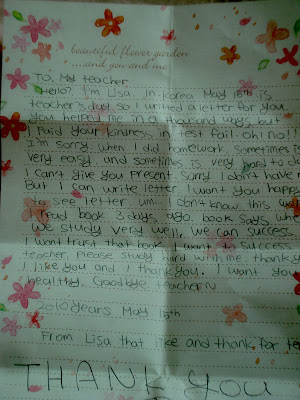 beautiful flower garden
...and you and me
To, My teacher
Hello? I'm Lisa. In korea May 15th is
teacher's day. so I writed a letter for you.
you helped me in a thousand ways but
I paid your kindness in test fail. oh! no!!
I'm sorry. when I did homework, sometimes is
very easy and sometimes is very hard to do
I can't give you present. Sorry I don't have
But I can write letter I want you happy
to see letter. um.. don't know. this way
read book 3 days ago. book says when
we study very well, we can success.
I want trust that book. I want to success.
teacher, please study hard with me. thank
I like you and I thank you. I want you
healthy. Goodbye teacher~
2010years May 15th
From Lisa that like and thank for
THANK YOU